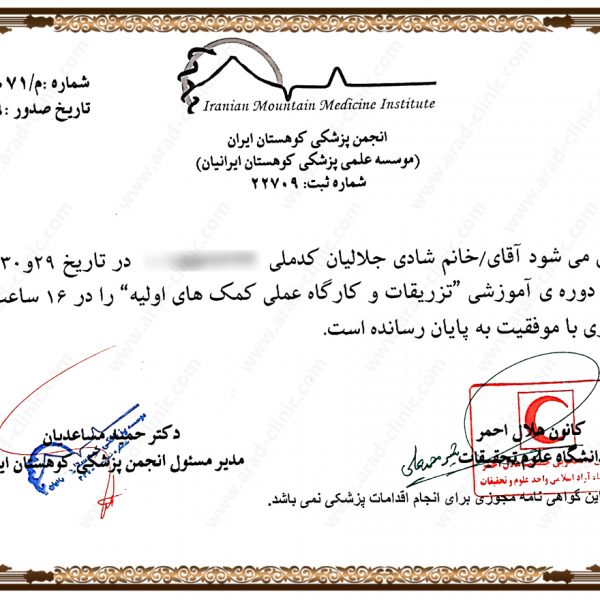 شماره :م/۷۱
تاریخ صدور :
Iranian Mountain Medicine Institute
انجمن پزشکی کوهستان ایران
(موسسه علمی پزشکی کوهستان ایرانیان)
شماره ثبت: ۲۲۷۰۹
می شود آقای/خانم شادی جلالیان کدملی در تاریخ ۲۹و۳۰
دوره ی آموزشی "تزریقات و کارگاه عملی کمک های اولیه" را در ۱۶ ساعت
با موفقیت به پایان رسانده است.
کانون هلال احمر
دانشگاه علوم تحقیقات
دکتر حمید مساعدیان
مدیر مسئول انجمن پزشکی کوهستان
آزاد اسلامی واحد علوم و تحقیقات
این گواهی نامه مجوزی برای انجام اقدامات پزشکی نمی باشد.
www.arad-clinic.com